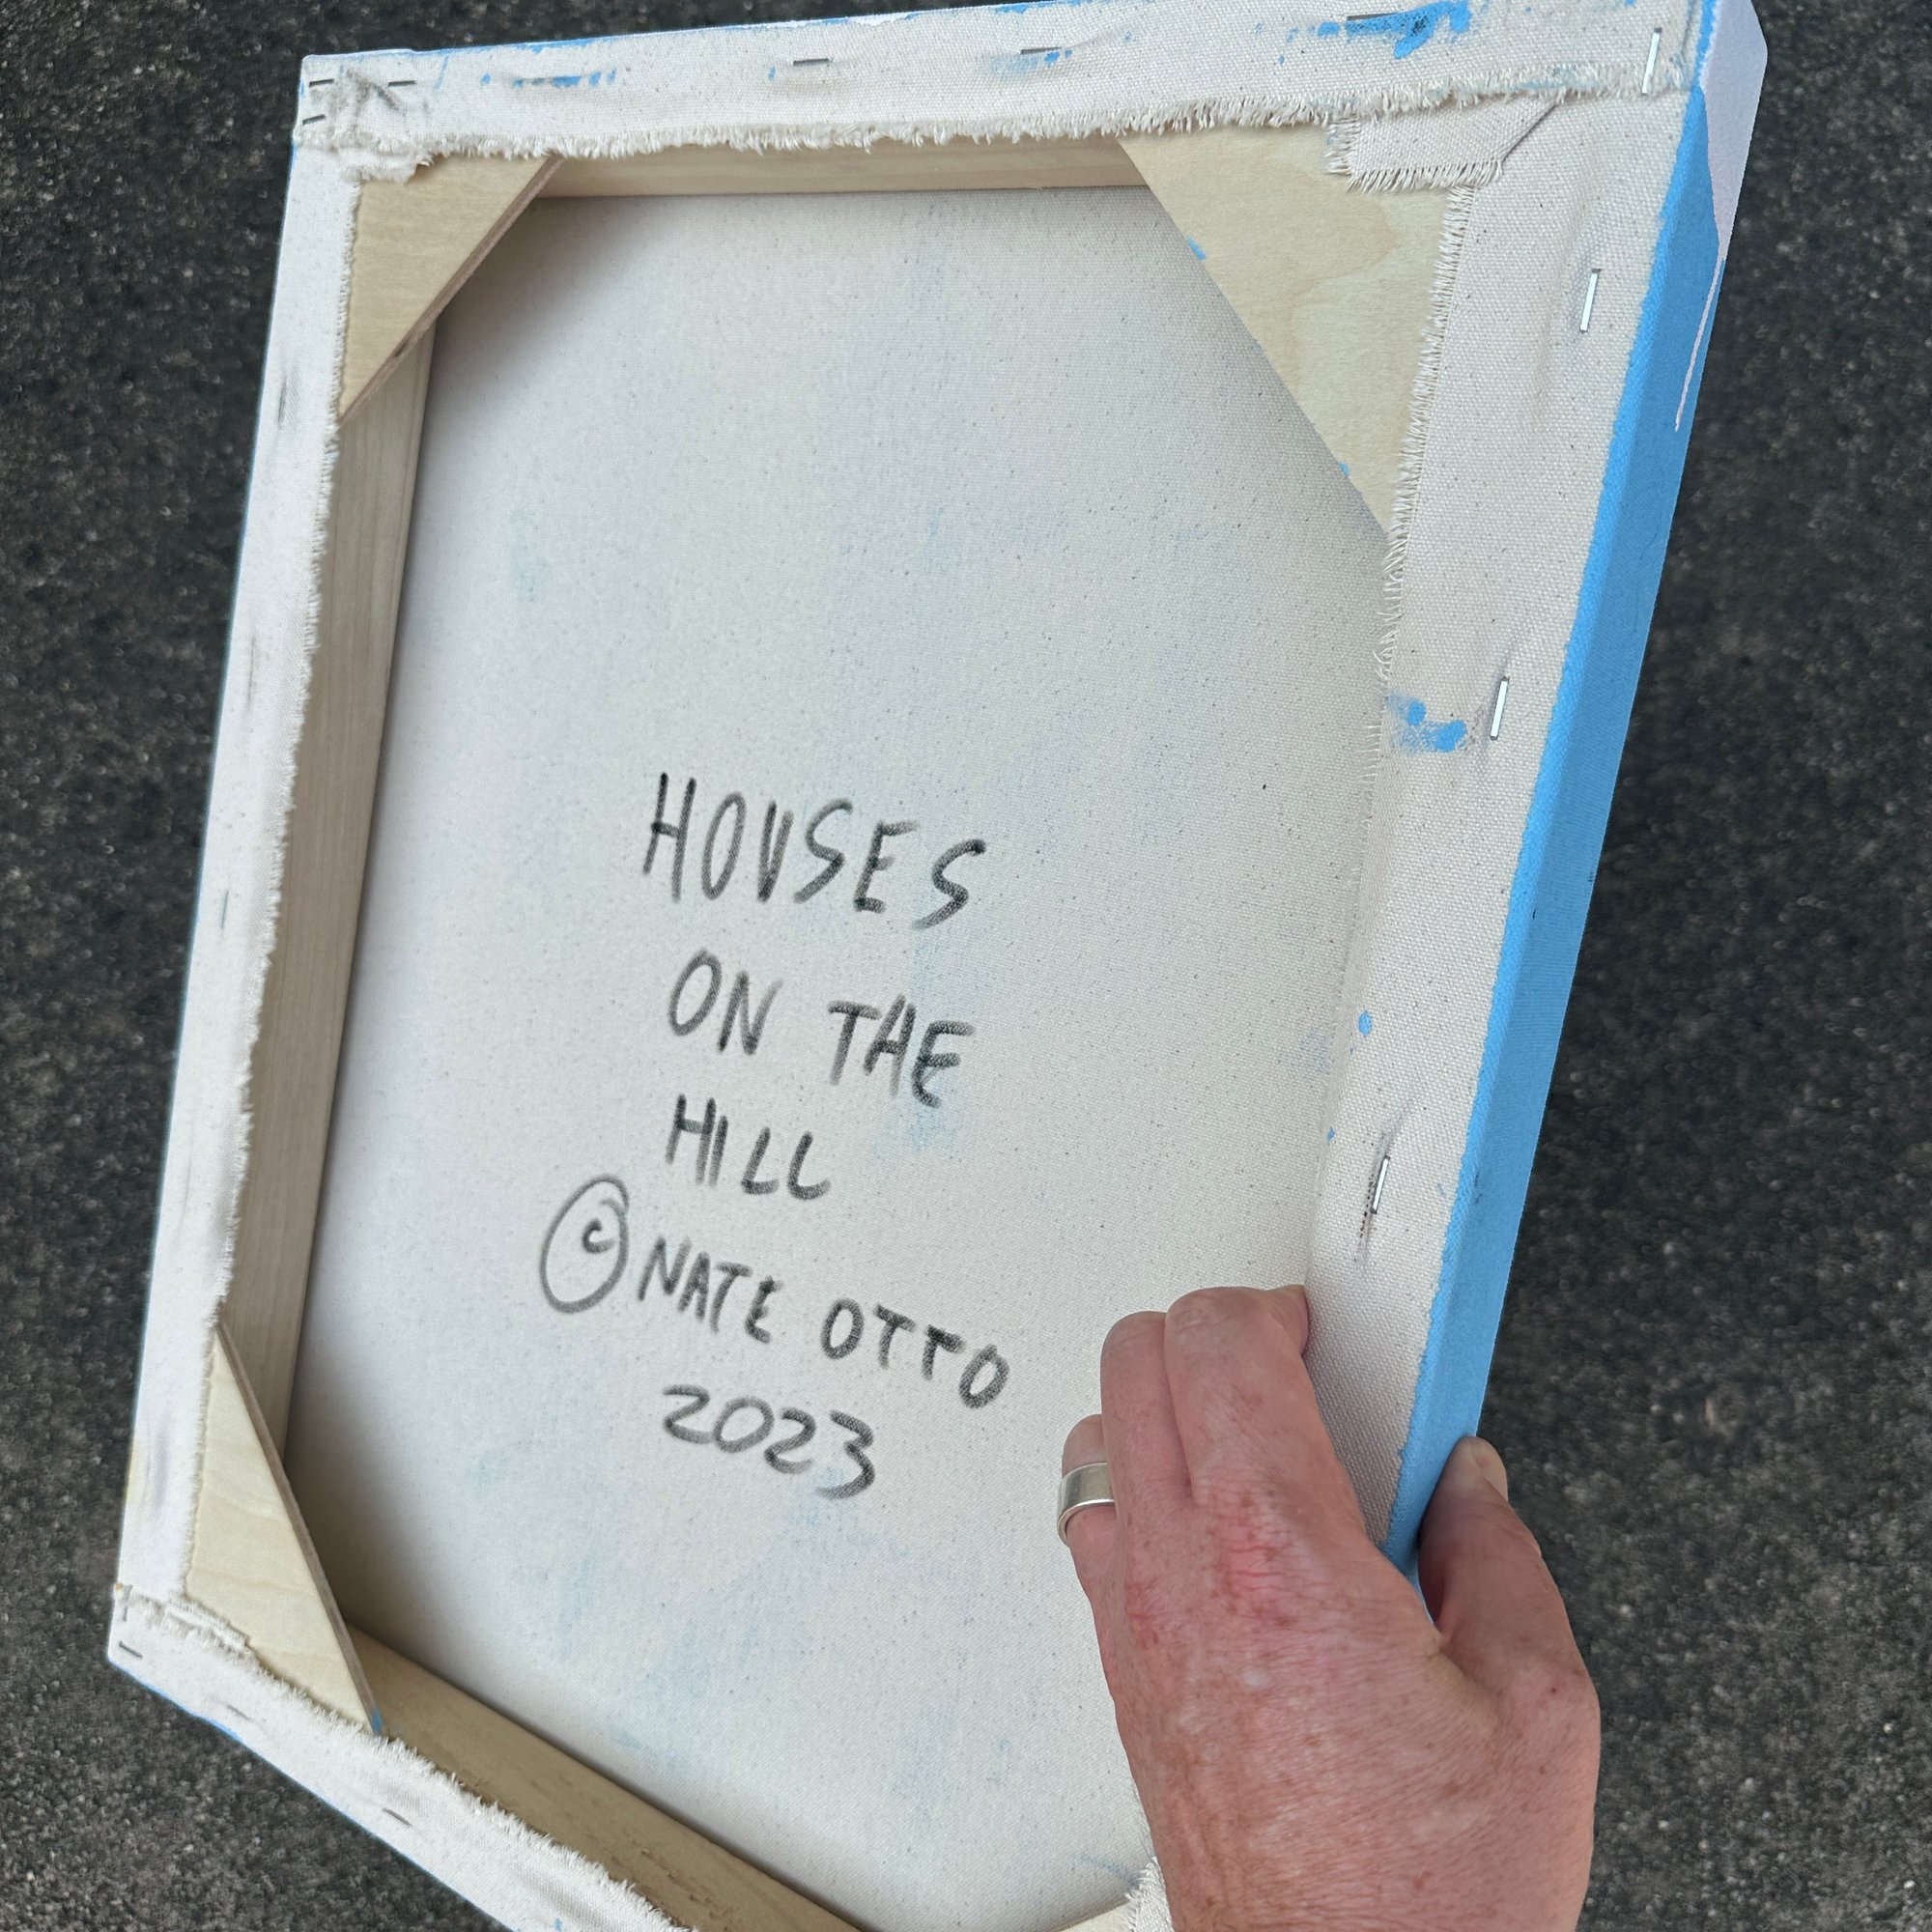 HOUSES
ON THE
HILL
© NATE OTTO
2023